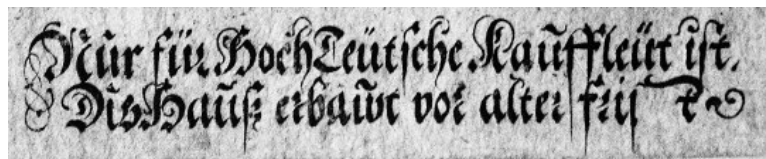 Nur für HochTeütsche Kauffleüt ist,
Dis Hauß erbawt vor alter frist